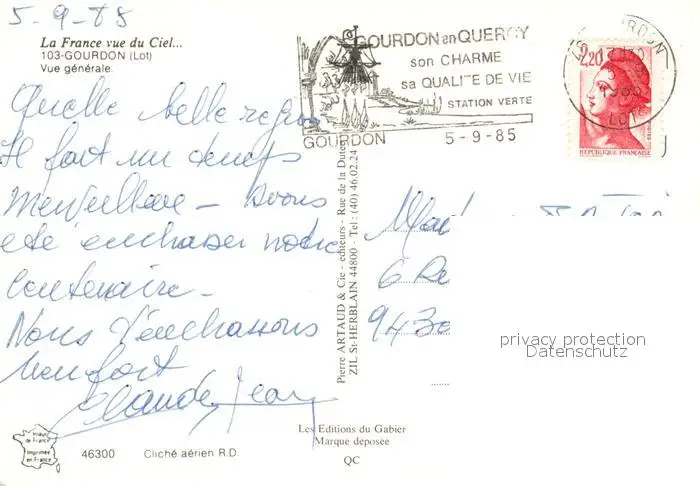 5-9-85
La France vue du Ciel...
103-GOURDON (Lot)
Vue générale.
Quelle belle région
Il fait un temps
merveilleux - Avons
été embrasser notre
Centenaire -
Nous t'embrassons
bien fort
Claude Jean
Images de France
Imprimée en France
46300 Cliché aérien R.D.
Pierre ARTAUD & Cie - éditeurs - Rue de la Dutée
ZIL St HERBLAIN 44800 - Tel: (40) 46.02.24
Les Editions du Gabier
Marque déposée
QC
GOURDON en QUERCY
son CHARME
sa QUALITE DE VIE
STATION VERTE
GOURDON 5-9-85
GOURDON
LOT
2,20
REPUBLIQUE FRANÇAISE
Mad
6 Re
9430
privacy protection
Datenschutz